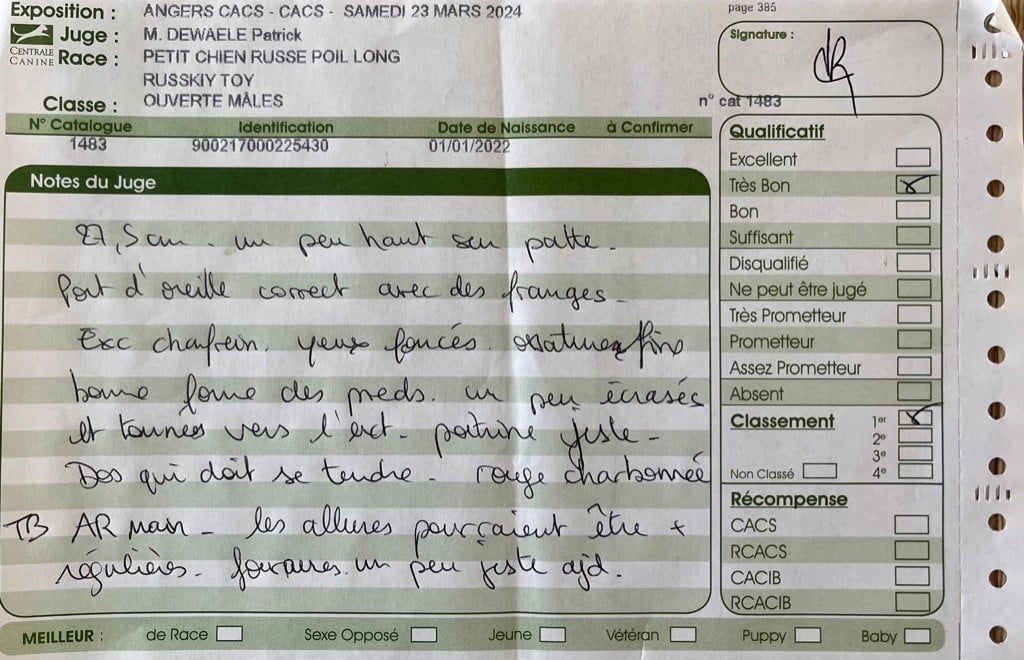 Exposition : ANGERS CACS - CACS - SAMEDI 23 MARS 2024
page 385
CENTRALE CANINE
Juge : M. DEWAELE Patrick
Race : PETIT CHIEN RUSSE POIL LONG
RUSSKIY TOY
Classe : OUVERTE MÂLES
Signature :
n° cat 1483
N° Catalogue Identification Date de Naissance à Confirmer
1483 900217000225430 01/01/2022
Notes du Juge
27,5 cm. un peu haut sur patte.
Port d'oreille correct avec des franges -
Exc chanfrein. yeux foncés. ossature fine
bonne forme des pieds. un peu écrasés
et tournés vers l'ext - poitrine juste -
Dos qui doit se tendre - rouge charbonnée
TB AR main - les allures pourraient être +
régulières. fourrures. un peu juste ajd.
Qualificatif
Excellent
Très Bon x
Bon
Suffisant
Disqualifié
Ne peut être jugé
Très Prometteur
Prometteur
Assez Prometteur
Absent
Classement 1er x
2e
3e
Non Classé 4e
Récompense
CACS
RCACS
CACIB
RCACIB
MEILLEUR : de Race Sexe Opposé Jeune Vétéran Puppy Baby